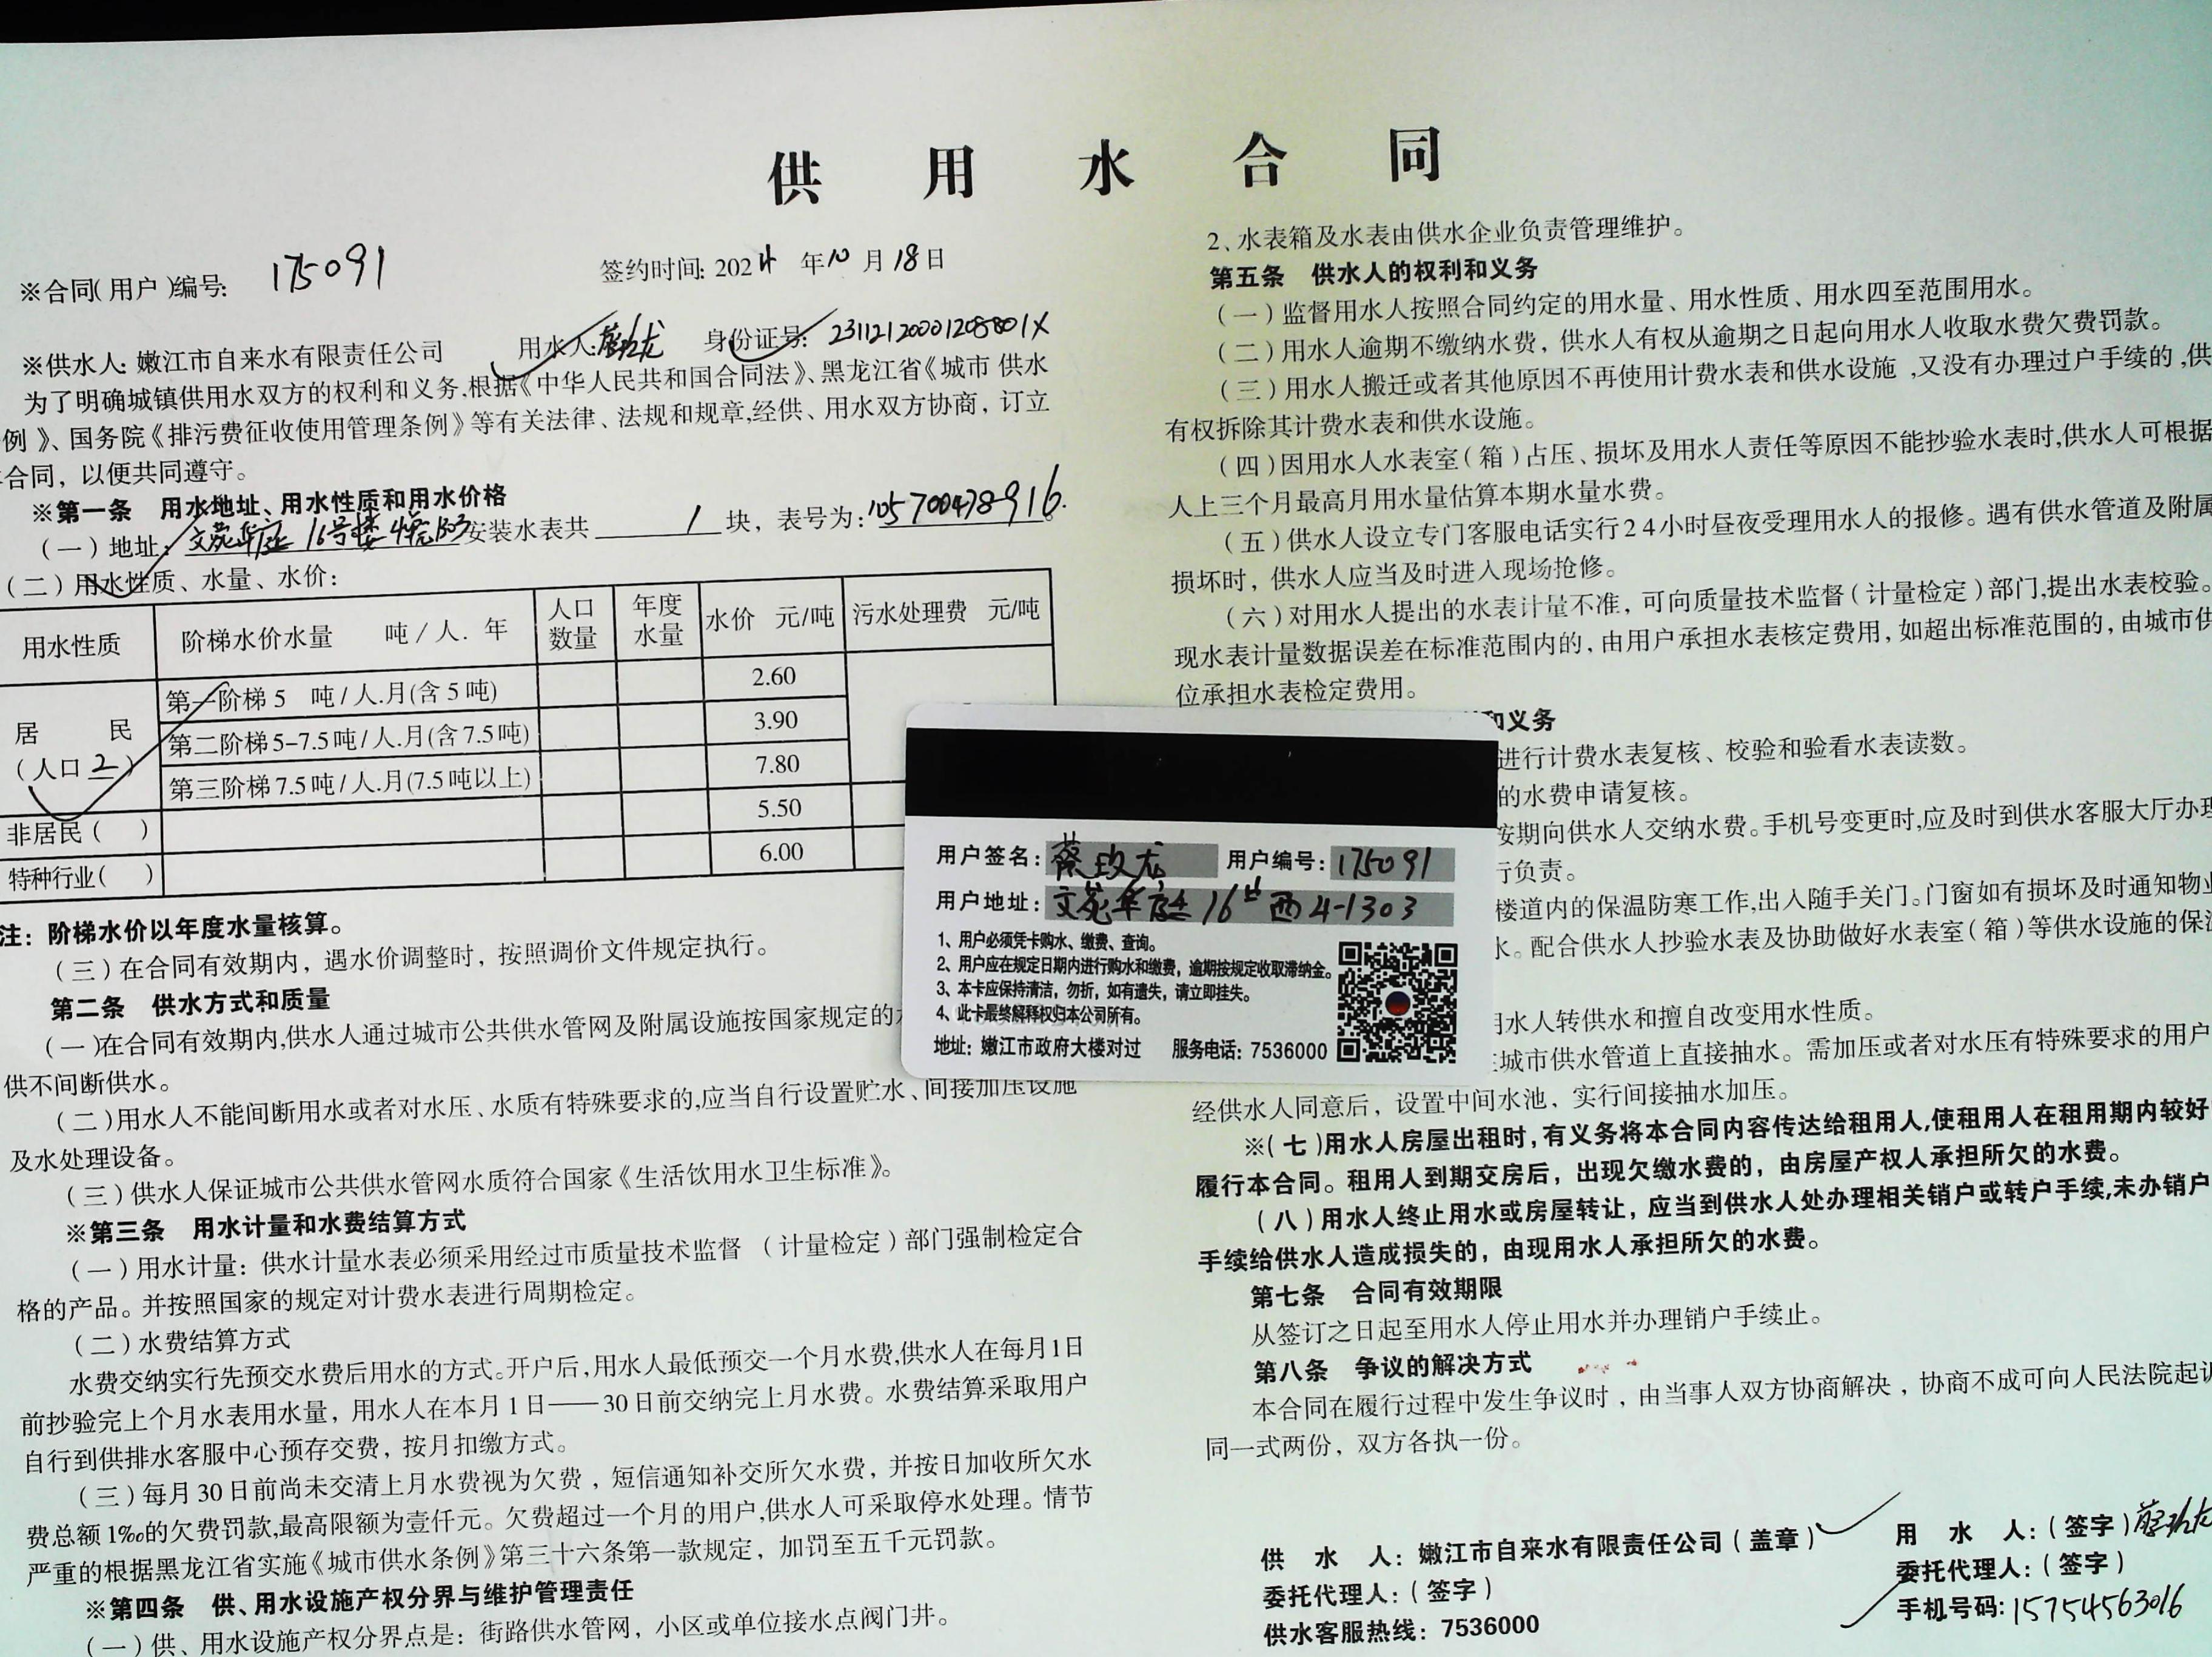 供用水合同
※合同(用户)编号: 175091 签约时间: 2024年10月18日
※供水人: 嫩江市自来水有限责任公司 用水人: 身份证号:
为了明确城镇供用水双方的权利和义务,根据《中华人民共和国合同法》、黑龙江省《城市 供水
例》、国务院《排污费征收使用管理条例》等有关法律、法规和规章,经供、用水双方协商，订立
合同，以便共同遵守。
※第一条 用水地址、用水性质和用水价格
(一)地址: 文苑华庭 16号楼 安装水表共 1 块，表号为: 105700478916.
(二)用水性质、水量、水价:
用水性质 阶梯水价水量 吨/人.年 人口数量 年度水量 水价 元/吨 污水处理费 元/吨
居民(人口2) 第一阶梯5 吨/人.月(含5吨) 2.60
第二阶梯5-7.5吨/人.月(含7.5吨) 3.90
第三阶梯7.5吨/人.月(7.5吨以上) 7.80
非居民( ) 5.50
特种行业( ) 6.00
注: 阶梯水价以年度水量核算。
(三)在合同有效期内，遇水价调整时，按照调价文件规定执行。
第二条 供水方式和质量
(一)在合同有效期内,供水人通过城市公共供水管网及附属设施按国家规定的
供不间断供水。
(二)用水人不能间断用水或者对水压、水质有特殊要求的,应当自行设置贮水、间接加压设施
及水处理设备。
(三)供水人保证城市公共供水管网水质符合国家《生活饮用水卫生标准》。
※第三条 用水计量和水费结算方式
(一)用水计量: 供水计量水表必须采用经过市质量技术监督 (计量检定)部门强制检定合
格的产品。并按照国家的规定对计费水表进行周期检定。
(二)水费结算方式
水费交纳实行先预交水费后用水的方式。开户后,用水人最低预交一个月水费,供水人在每月1日
前抄验完上个月水表用水量，用水人在本月1日——30日前交纳完上月水费。水费结算采取用户
自行到供排水客服中心预存交费，按月扣缴方式。
(三)每月30日前尚未交清上月水费视为欠费，短信通知补交所欠水费，并按日加收所欠水
费总额1‰的欠费罚款,最高限额为壹仟元。欠费超过一个月的用户,供水人可采取停水处理。情节
严重的根据黑龙江省实施《城市供水条例》第三十六条第一款规定，加罚至五千元罚款。
※第四条 供、用水设施产权分界与维护管理责任
(一)供、用水设施产权分界点是: 街路供水管网，小区或单位接水点阀门井。
2、水表箱及水表由供水企业负责管理维护。
第五条 供水人的权利和义务
(一)监督用水人按照合同约定的用水量、用水性质、用水四至范围用水。
(二)用水人逾期不缴纳水费，供水人有权从逾期之日起向用水人收取水费欠费罚款。
(三)用水人搬迁或者其他原因不再使用计费水表和供水设施,又没有办理过户手续的,供
有权拆除其计费水表和供水设施。
(四)因用水人水表室(箱)占压、损坏及用水人责任等原因不能抄验水表时,供水人可根据
人上三个月最高月用水量估算本期水量水费。
(五)供水人设立专门客服电话实行24小时昼夜受理用水人的报修。遇有供水管道及附属
损坏时，供水人应当及时进入现场抢修。
(六)对用水人提出的水表计量不准，可向质量技术监督(计量检定)部门,提出水表校验。
现水表计量数据误差在标准范围内的，由用户承担水表核定费用，如超出标准范围的，由城市供
位承担水表检定费用。
和义务
进行计费水表复核、校验和验看水表读数。
的水费申请复核。
按期向供水人交纳水费。手机号变更时,应及时到供水客服大厅办理
行负责。
楼道内的保温防寒工作,出入随手关门。门窗如有损坏及时通知物业
水。配合供水人抄验水表及协助做好水表室(箱)等供水设施的保温
用水人转供水和擅自改变用水性质。
城市供水管道上直接抽水。需加压或者对水压有特殊要求的用户
经供水人同意后，设置中间水池，实行间接抽水加压。
※(七)用水人房屋出租时,有义务将本合同内容传达给租用人,使租用人在租用期内较好
履行本合同。租用人到期交房后，出现欠缴水费的，由房屋产权人承担所欠的水费。
(八)用水人终止用水或房屋转让，应当到供水人处办理相关销户或转户手续,未办销户
手续给供水人造成损失的，由现用水人承担所欠的水费。
第七条 合同有效期限
从签订之日起至用水人停止用水并办理销户手续止。
第八条 争议的解决方式
本合同在履行过程中发生争议时，由当事人双方协商解决，协商不成可向人民法院起诉
同一式两份，双方各执一份。
供 水 人: 嫩江市自来水有限责任公司(盖章)
委托代理人:(签字)
供水客服热线: 7536000
用 水 人:(签字)
委托代理人:(签字)
手机号码: 15754563016
用户签名: 蔡玫龙 用户编号: 175091
用户地址: 文苑华庭 16# 西 4-1303
1、用户必须凭卡购水、缴费、查询。
2、用户应在规定日期内进行购水和缴费，逾期按规定收取滞纳金。
3、本卡应保持清洁，勿折，如有遗失，请立即挂失。
4、此卡最终解释权归本公司所有。
地址: 嫩江市政府大楼对过 服务电话: 7536000